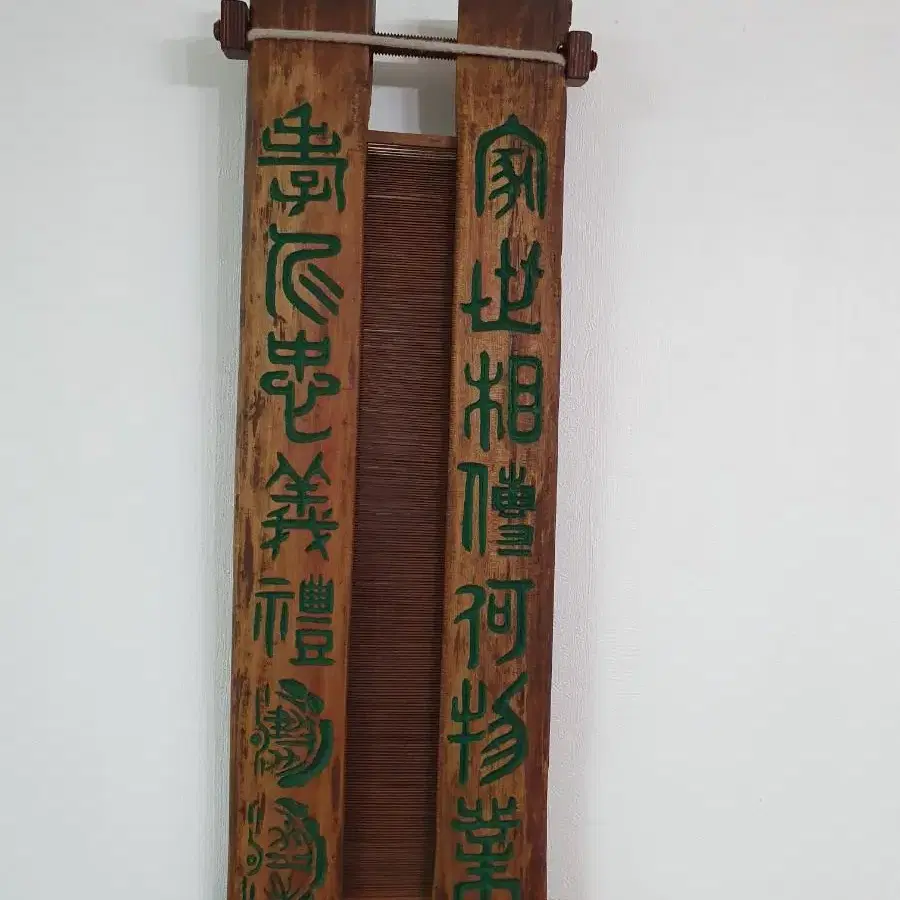 家世相傳何物業
孝仁忠義禮